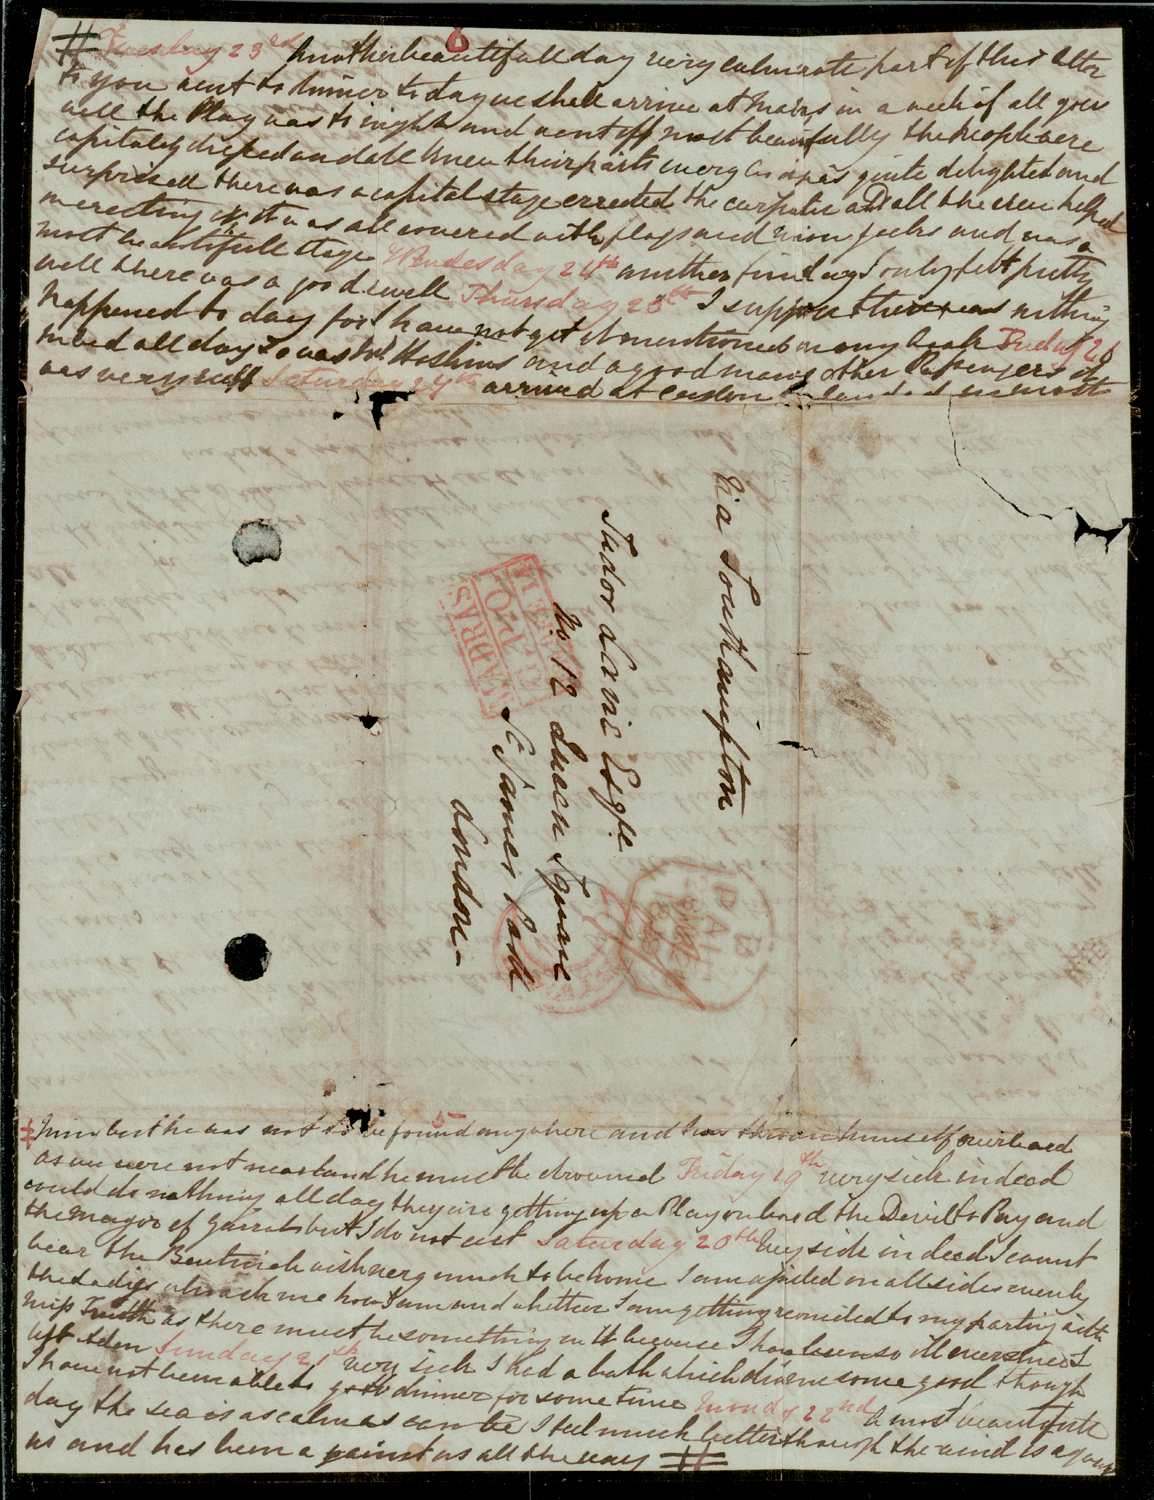 # Tuesday 23rd Another beautifull day very calm wrote part of this letter
to you went to dinner to day we shall arrive at Madras in a week if all goes
well the Play was to night and went off most beautifully the people were
capitaly dressed and all knew their parts every one was quite delighted and
surprised there was a capital stage errected the carpenter and all the crew helped
in erecting it it was all covered with flags and union jacks and was a
most beautifull stage Wendesday 24th another fine day I only felt pretty
well there was a good swell Thursday 25th I suppose there was nothing
happened to day for I have not got it mentioned in my book Friday 26
in bed all day so was Hoskins and a good many other Passengers it
was very ruff Saturday 27th arrived at Ceylon landed in most
6
Via Southampton
Tudor Lavie Esqre
No 12 Queen Square
St James Park
London -
MADRAS
G.P.O.
5
‡ him but he was not to be found anywhere and has thrown himself overboard
as we were not near land he must be drowned Friday 19th very sick indeed
could do nothing all day they are getting up a Play on board the Devil to Pay and
the Mayor of Garratt but I do not act Saturday 20th very sick indeed I cannot
bear the Bentinck wish very much to be home I am assailed on all sides evenly
the Ladies who ask me how I am and whether I am getting reconciled to my parting with
miss Smith as there must be something in it because I have been so ill ever since I
left Aden Sunday 21st very sick I had a bath which did me some good though
I have not been able to go to dinner for some time Monday 22nd A most beautifull
day the sea is as calm as can be I feel much better though the wind is against
us and has been against us all the way #